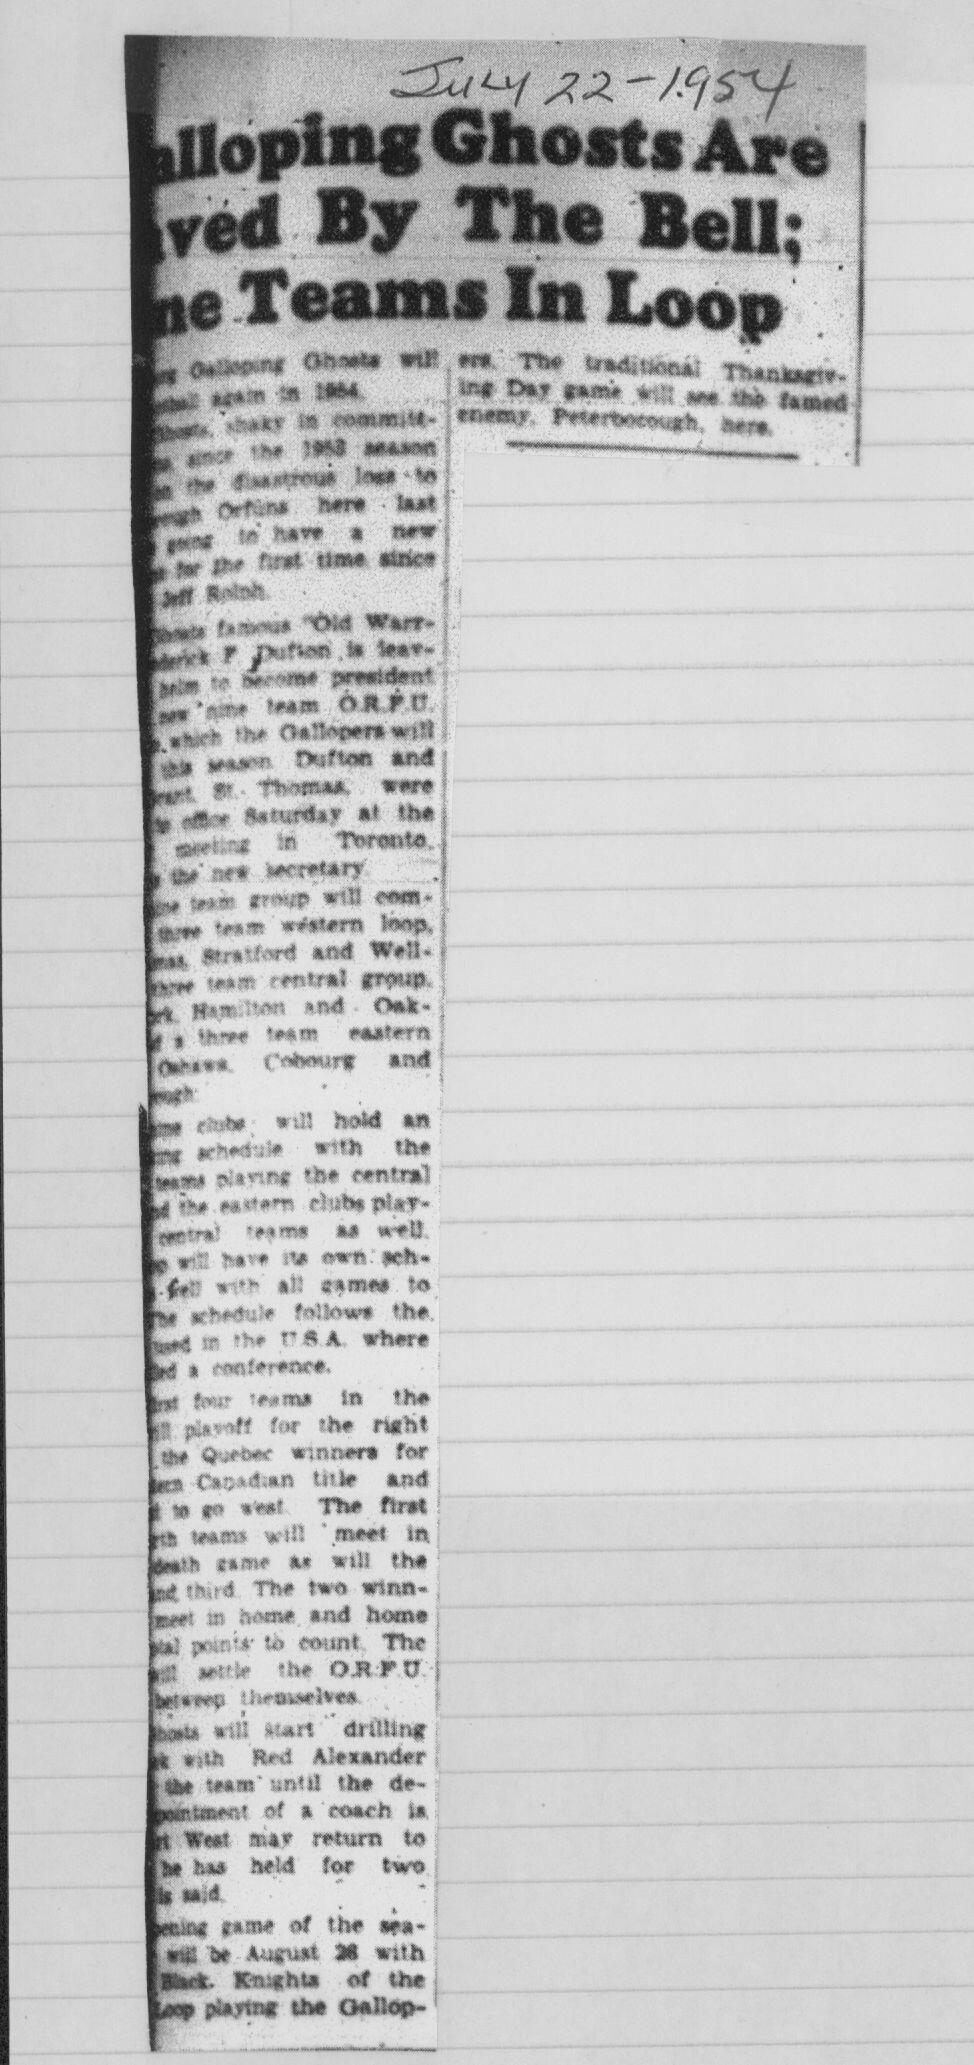 July 22-1954
alloping Ghosts Are
ved By The Bell;
ne Teams In Loop
Galloping Ghosts will
again in 1954.
shaky in committ-
since the 1953 season
the disastrous loss to
Orfuns here last
going to have a new
for the first time since
Jeff Rolph.
famous "Old Warr-
F. Dufton is leav-
helm to become president
new nine team O.R.F.U.
which the Gallopers will
this season. Dufton and
St. Thomas, were
office Saturday at the
meeting in Toronto.
the new secretary.
team group will com-
three team western loop,
mas, Stratford and Well-
three team central group,
rk, Hamilton and Oak-
a three team eastern
Oshawa, Cobourg and
ough.
clubs will hold an
ing schedule with the
teams playing the central
the eastern clubs play-
central teams as well.
will have its own sch-
well with all games to
The schedule follows the
used in the U.S.A. where
a conference.
rst four teams in the
playoff for the right
the Quebec winners for
Canadian title and
to go west. The first
rth teams will meet in
death game as will the
third. The two winn-
meet in home and home
tal points to count. The
settle the O.R.F.U.
between themselves.
hosts will start drilling
with Red Alexander
the team until the de-
pointment of a coach is
West may return to
he has held for two
is said.
ening game of the sea-
will be August 28 with
Black Knights of the
Loop playing the Gallop-
ers. The traditional Thanksgiv-
ing Day game will see the famed
enemy, Peterborough, here.